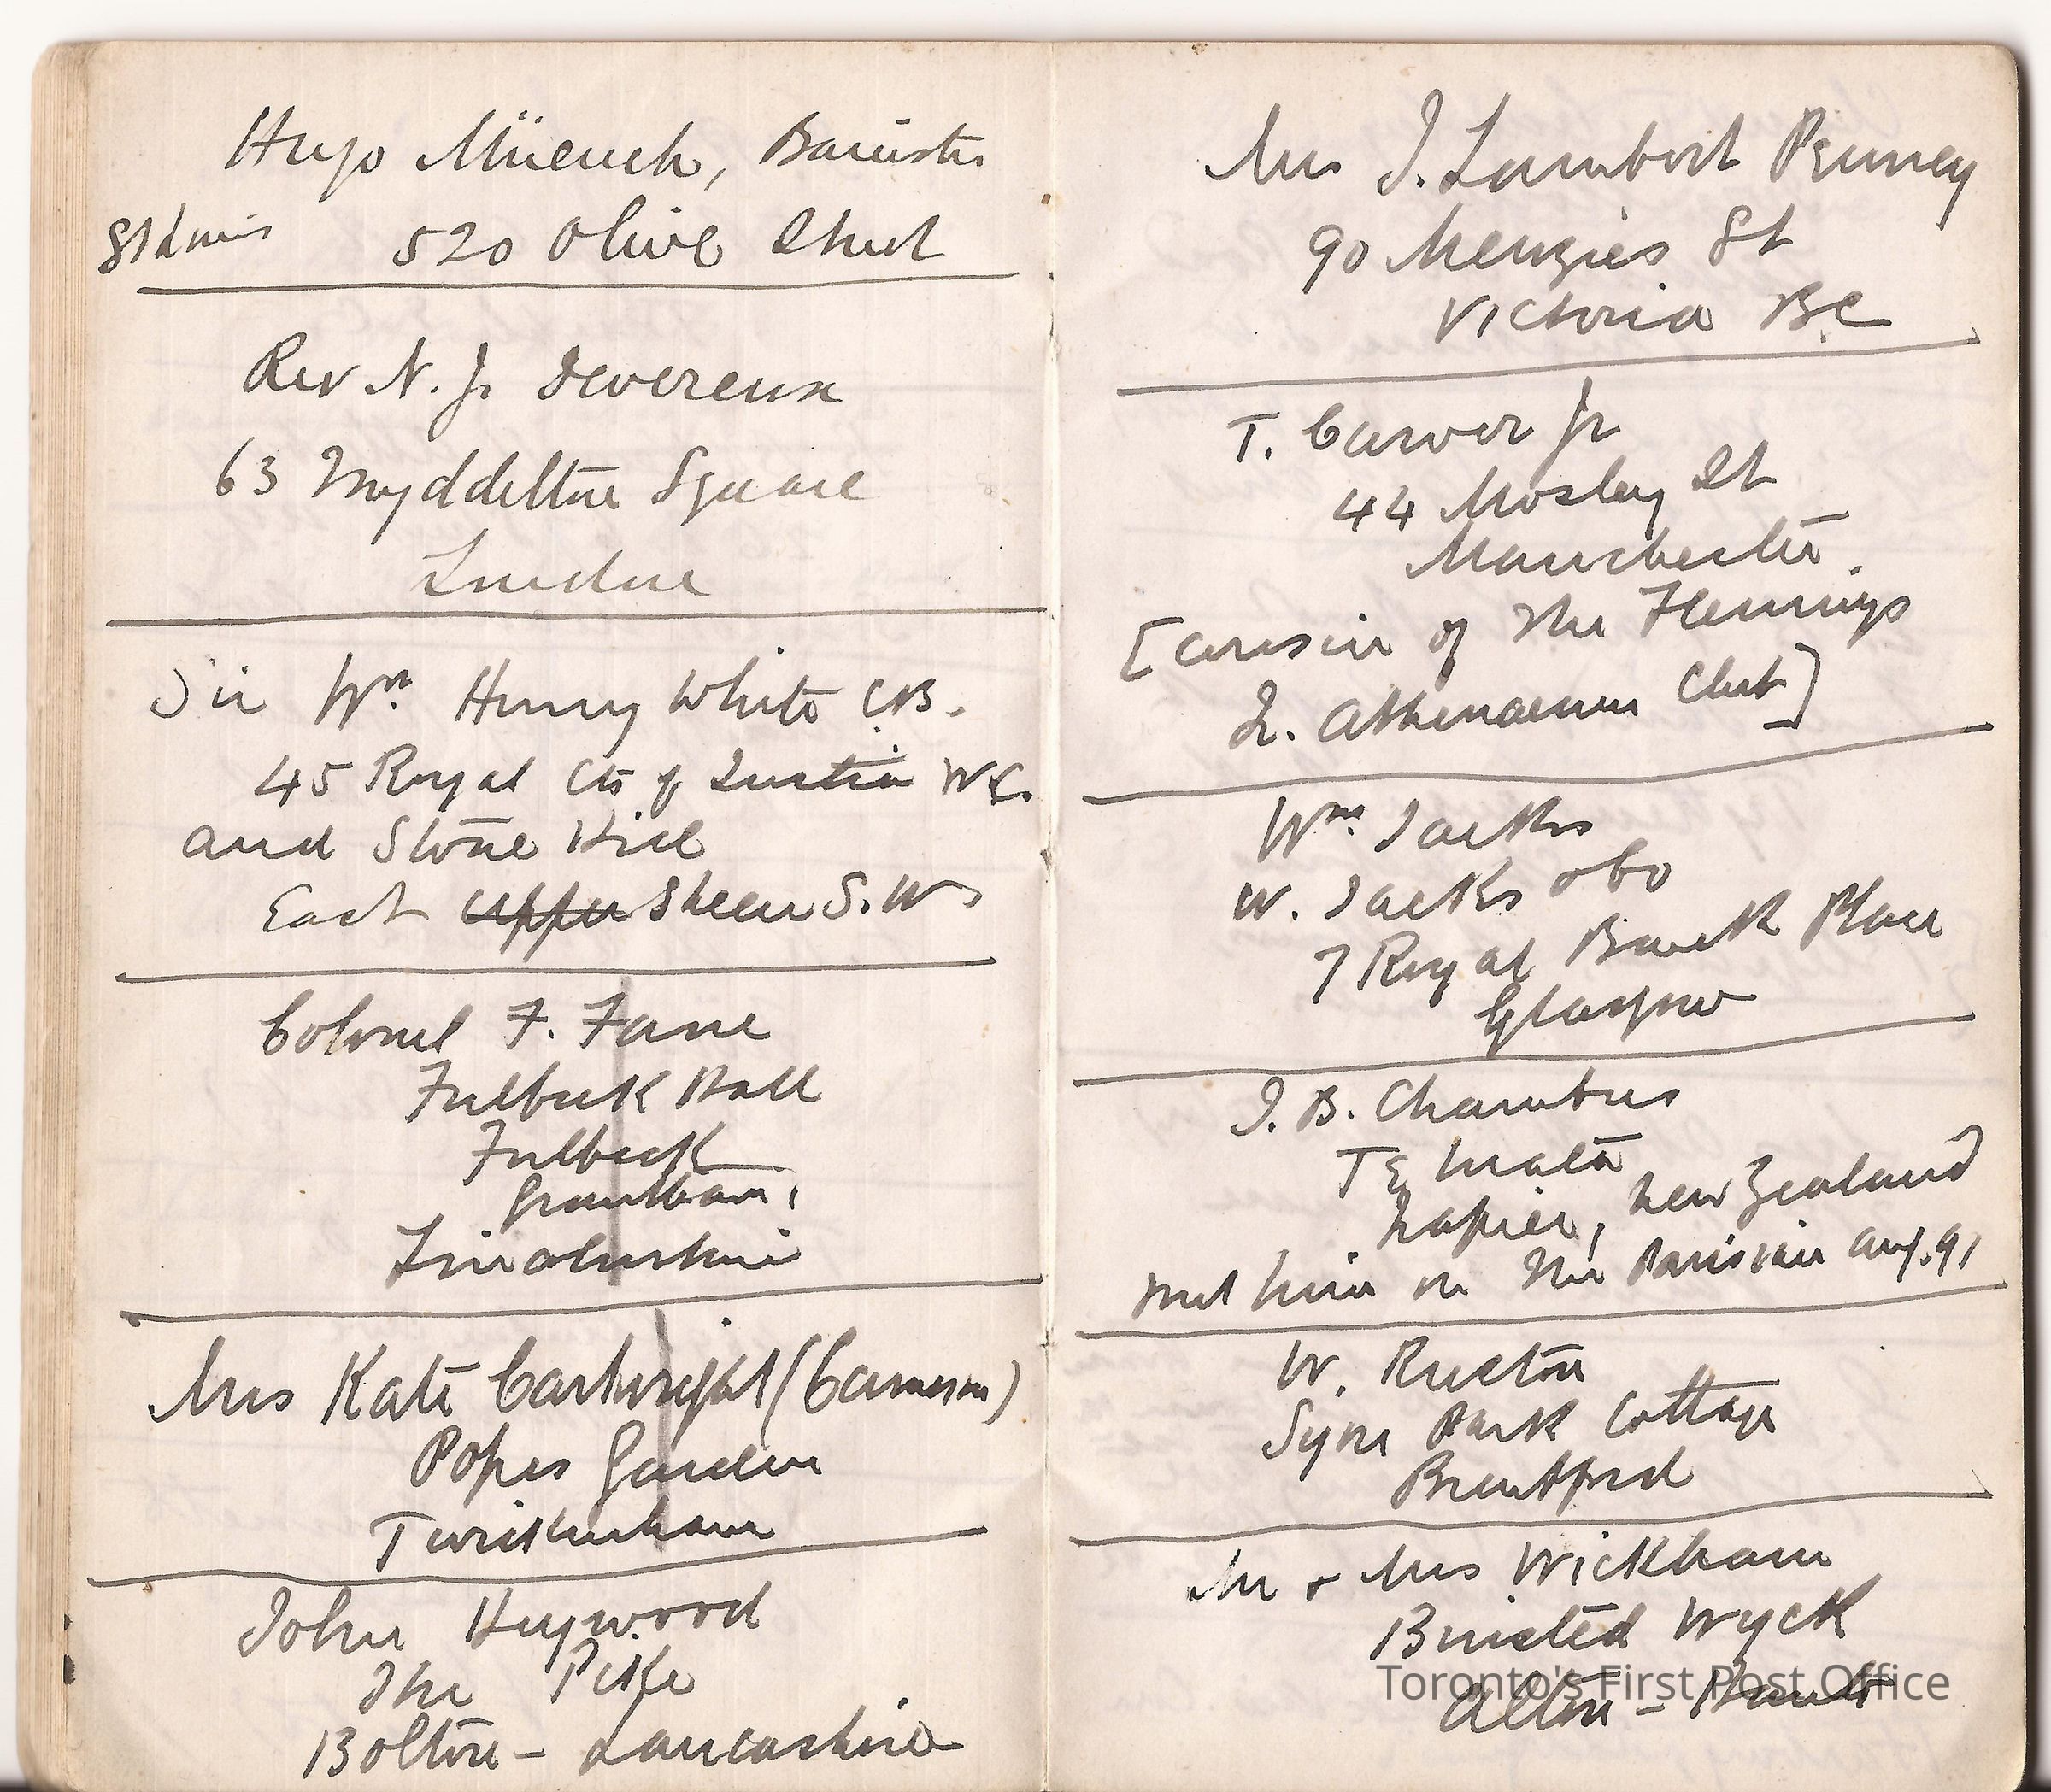 Hugo Müench, Barrister
St Louis 520 Olive Street
Rev N. Jr Devereux
63 Myddelton Square
London
Sir Wm. Henry White C.B.
45 Royal Cts of Justice W.C.
and Stone Hill
East Upper Sheen S.W
Colonel F. Fane
Fulbeck Hall
Fulbeck
Grantham,
Lincolnshire
Mrs Kate Cartwright (Cameron)
Popes Garden
Twickenham
John Heywood
The Pike
Bolton - Lancashire
Mrs J. Lambert Penney
90 Menzies St
Victoria B.C
T. Carver Jr
44 Mosley St
Manchester.
[Cousin of the Flemings
Athenaeum Club]
Wm. Jacks
W. Jacks & Co
7 Royal Bank Place
Glasgow
J. B. Chambers
Te Mata
Napier, New Zealand
met him on the Parisian Aug. 91
W. Ruston
Syon Park Cottage
Brentford
Mr & Mrs Wickham
Binsted Wyck
Alton - Hants
Toronto's First Post Office